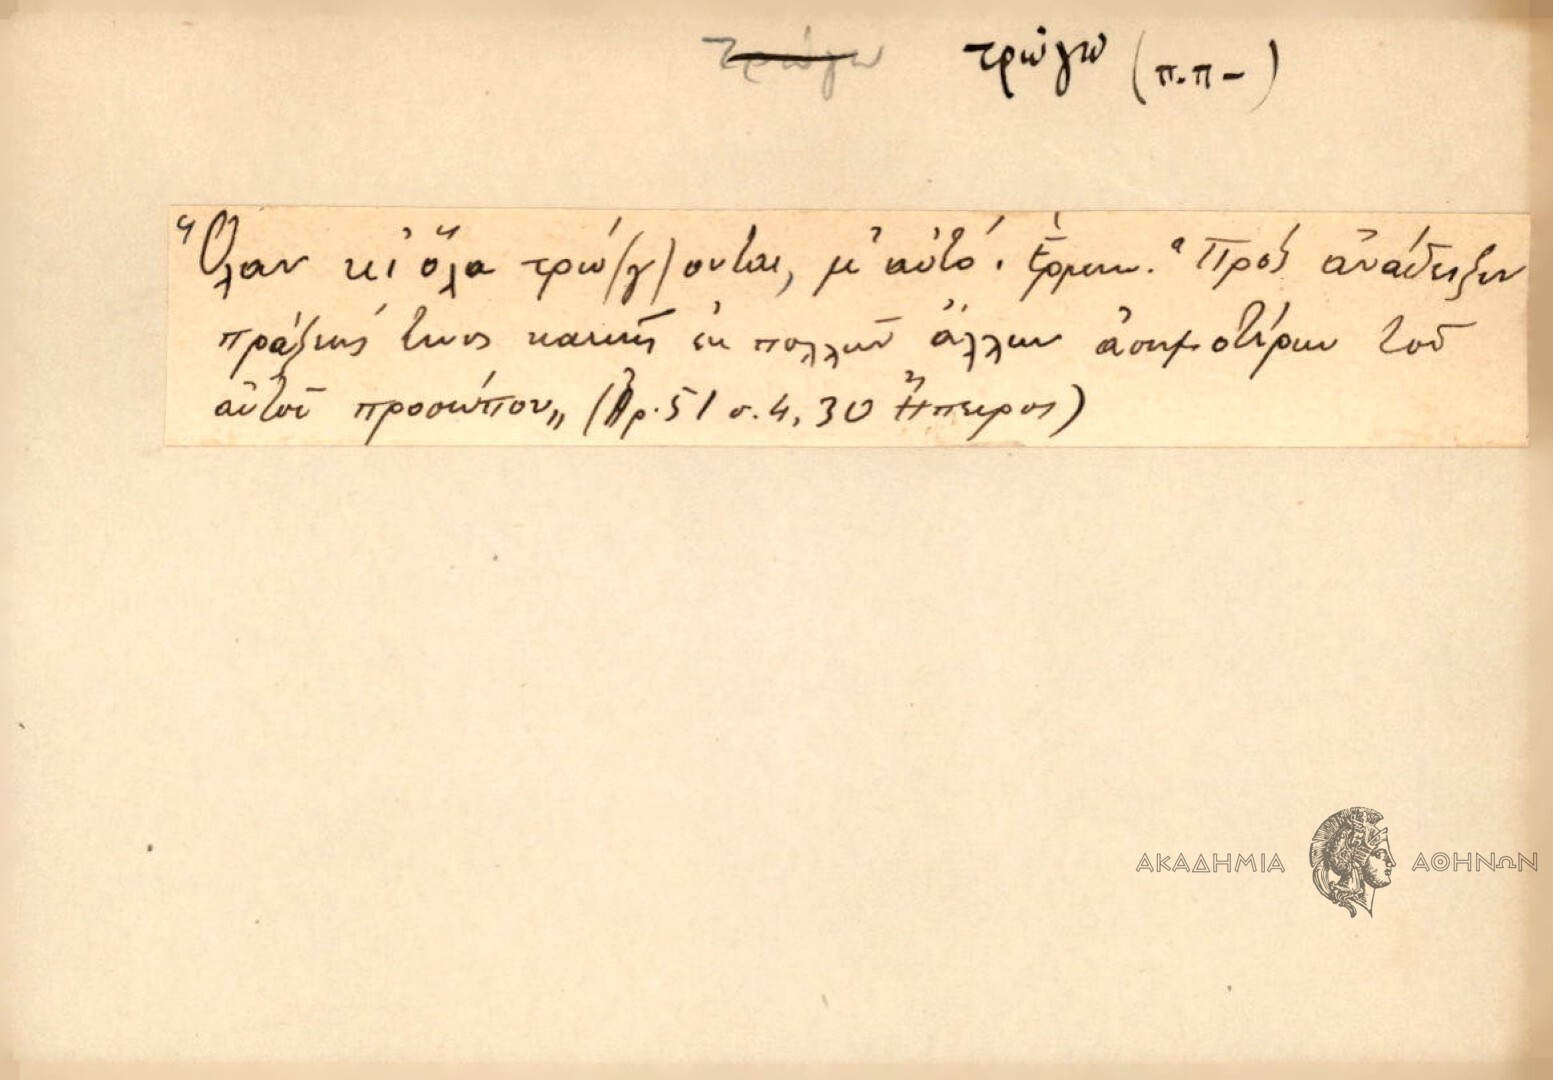 τρώγω τρώγω (π.π-)
Ὅλαν κι ὅλα τρώ(γ)ονται, μ' αὐτό. Ἑρμην. "Πρὸς ἀνάδειξιν
πράξεώς τινος κακῆς ἐκ πολλῶν ἄλλων ἀσημοτέρων τοῦ
αὐτοῦ προσώπου" (Ἀρ. 51 σ. 4, 30 Ἤπειρος)
ΑΚΑΔΗΜΙΑ ΑΘΗΝΩΝ